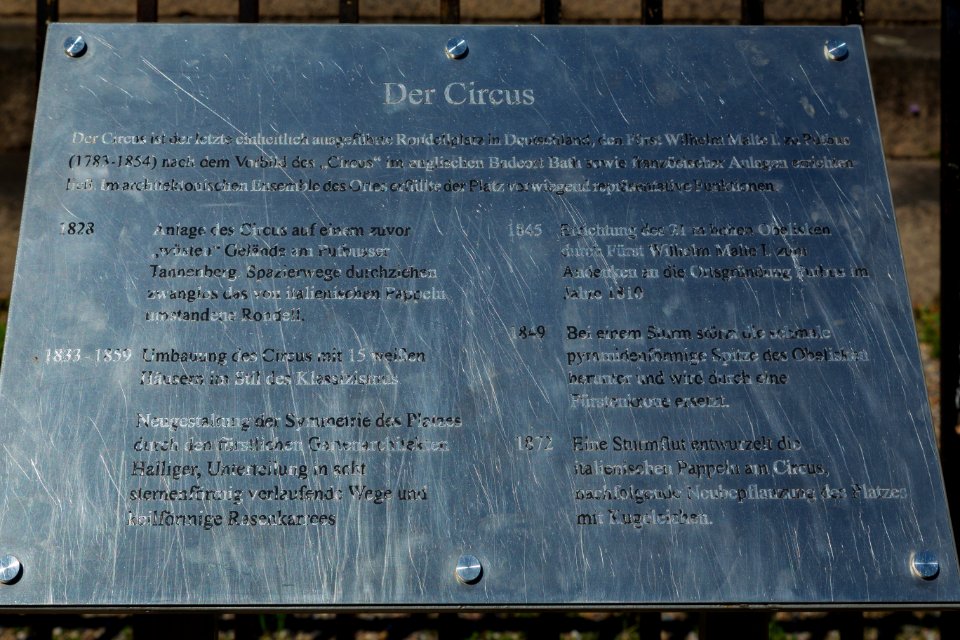 Der Circus
Der Circus ist der letzte einheitlich ausgeführte Rondellplatz in Deutschland, den Fürst Wilhelm Malte I. zu Putbus
(1783-1854) nach dem Vorbild des „Circus“ im englischen Badeort Bath sowie französischer Anlagen errichten
ließ. Im architektonischen Ensemble des Ortes erfüllte der Platz vorwiegend repräsentative Funktionen.
1828 Anlage des Circus auf einem zuvor
„wüsten“ Gelände am Putbusser
Tannenberg. Spazierwege durchziehen
zwanglos das von italienischen Pappeln
umstandene Rondell.
1833 - 1859 Umbauung des Circus mit 15 weißen
Häusern im Stil des Klassizismus
Neugestaltung der Symmetrie des Platzes
durch den fürstlichen Gartenarchitekten
Halliger, Unterteilung in acht
sternenförmig verlaufende Wege und
keilförmige Rasenkarrees
1845 Errichtung des 21 m hohen Obelisken
durch Fürst Wilhelm Malte I. zum
Andenken an die Ortsgründung Putbus im
Jahre 1810
1849 Bei einem Sturm stürzt die schmale
pyramidenförmige Spitze des Obelisken
herunter und wird durch eine
Fürstenkrone ersetzt.
1872 Eine Sturmflut entwurzelt die
italienischen Pappeln am Circus,
nachfolgende Neubepflanzung des Platzes
mit Kugeleichen.